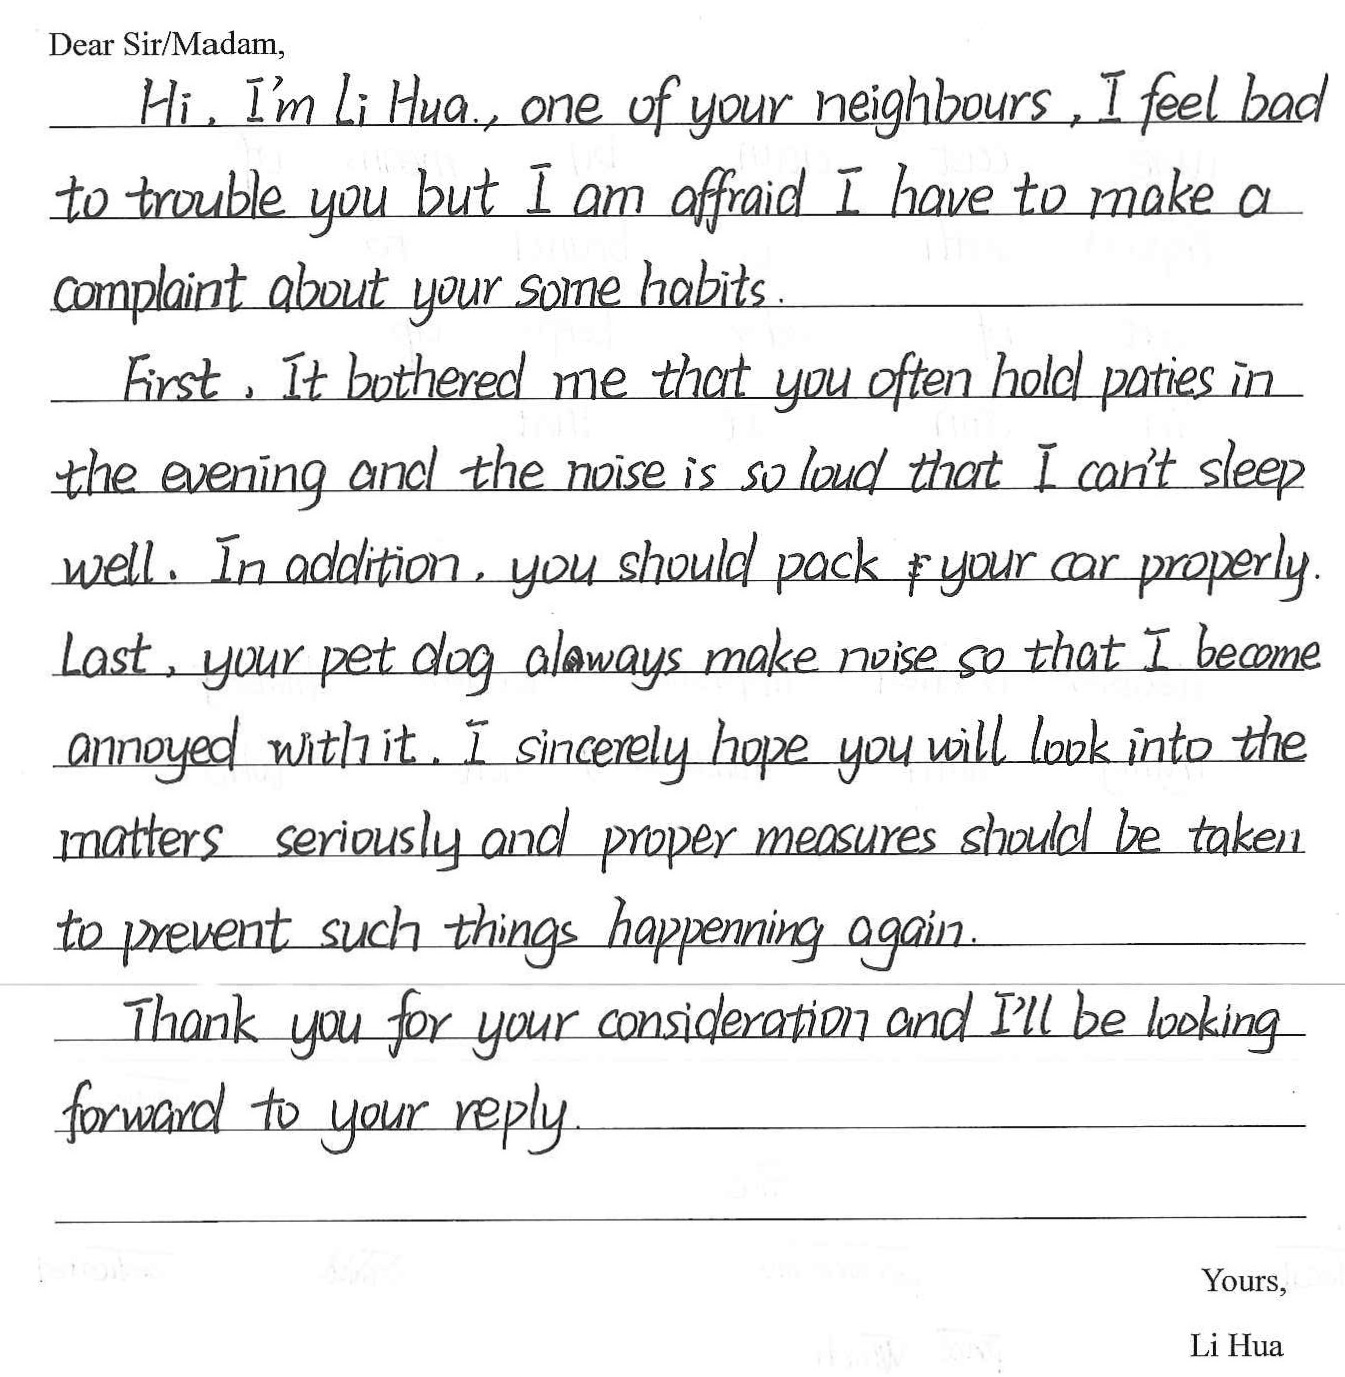 Dear Sir/Madam,
Hi, I'm Li Hua., one of your neighbours, I feel bad
to trouble you but I am affraid I have to make a
complaint about your some habits.
First, It bothered me that you often hold paties in
the evening and the noise is so loud that I can't sleep
well. In addition, you should pack your car properly.
Last, your pet dog always make noise so that I become
annoyed with it. I sincerely hope you will look into the
matters seriously and proper measures should be taken
to prevent such things happenning again.
Thank you for your consideration and I'll be looking
forward to your reply.
Yours,
Li Hua